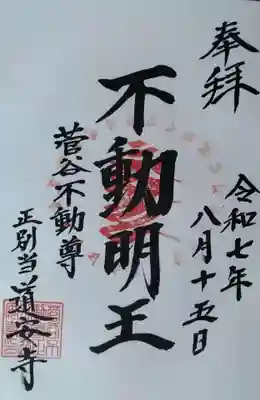 奉拝
令和七年
八月十五日
不動明王
菅谷不動尊
正別当道安寺